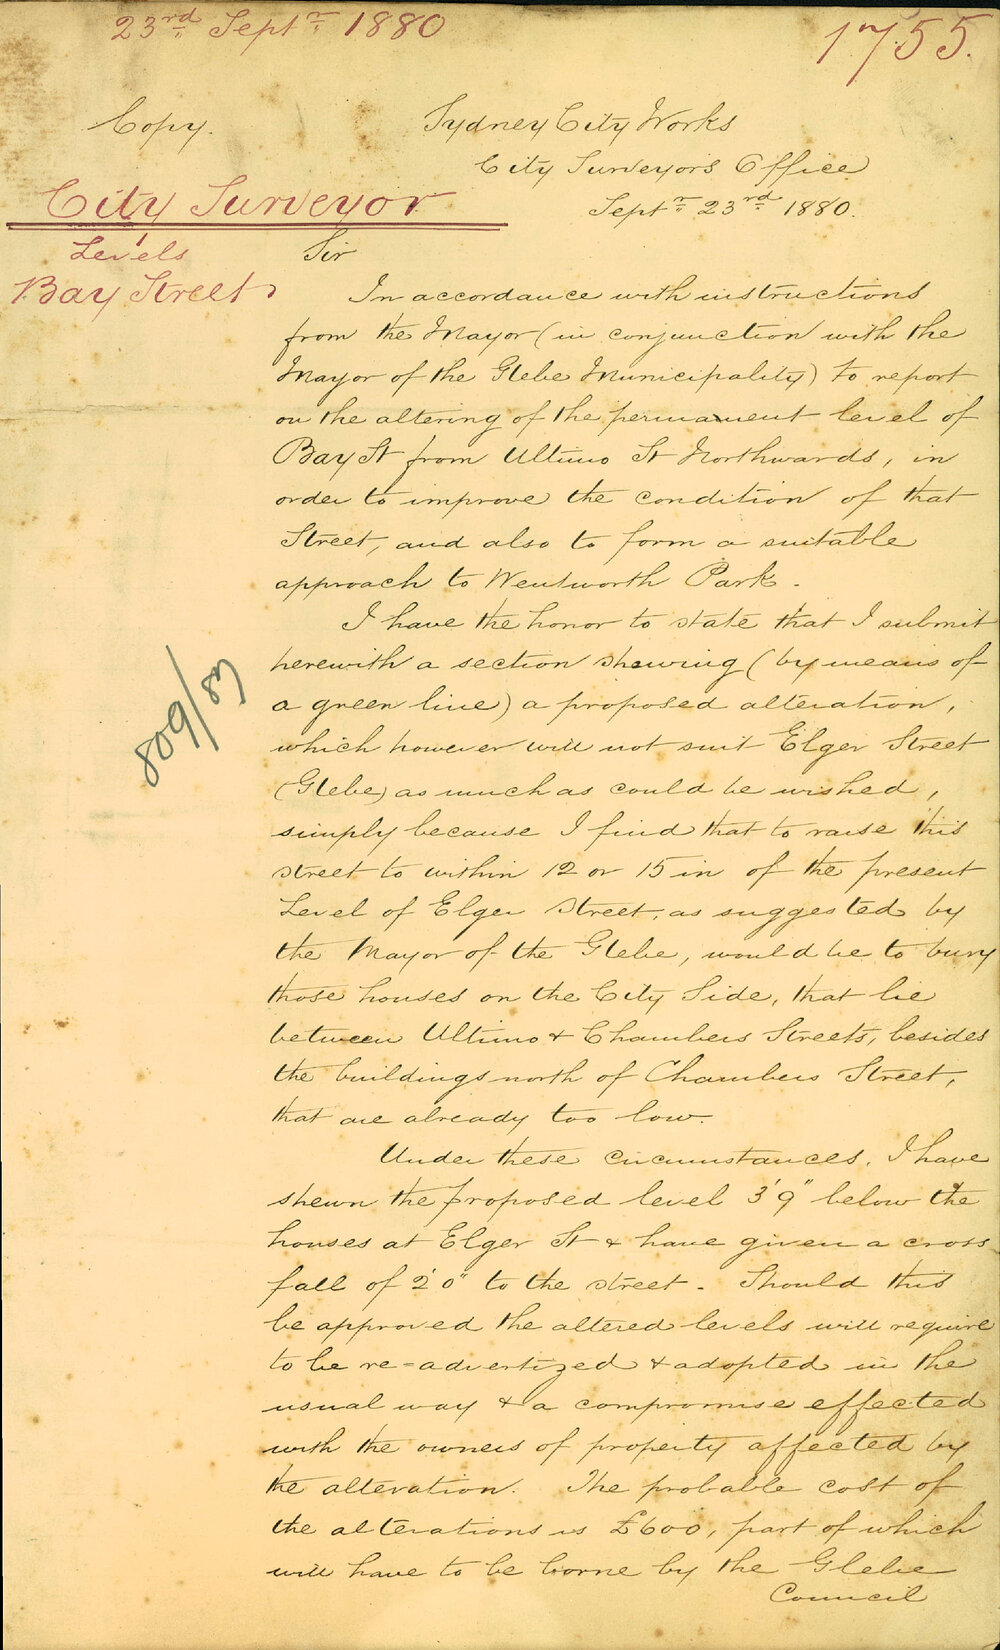 23rd Septr 1880
1755.
Copy.
Sydney City Works
City Surveyor's Office
Septr 23rd 1880.
City Surveyor
Levels
Bay Street
Sir
In accordance with instructions
from the Mayor (in conjunction with the
Mayor of the Glebe Municipality) to report
on the altering of the permanent level of
Bay St from Ultimo St Northwards, in
order to improve the condition of that
Street, and also to form a suitable
approach to Wentworth Park.
I have the honor to state that I submit
herewith a section shewing (by means of
a green line) a proposed alteration,
which however will not suit Elger Street
(Glebe) as much as could be wished,
simply because I find that to raise this
street to within 12 or 15 in of the present
Level of Elger Street, as suggested by
the Mayor of the Glebe, would be to bury
those houses on the City Side, that lie
between Ultimo & Chambers Streets, besides
the buildings north of Chambers Street,
that are already too low.
809/83
Under these circumstances, I have
shewn the proposed level 3'9" below the
houses at Elger St & have given a cross
fall of 2'0" to the street. Should this
be approved the altered levels will require
to be re-advertized & adopted in the
usual way & a compromise effected
with the owners of property affected by
the alteration. The probable cost of
the alterations is £600, part of which
will have to be borne by the Glebe
Council